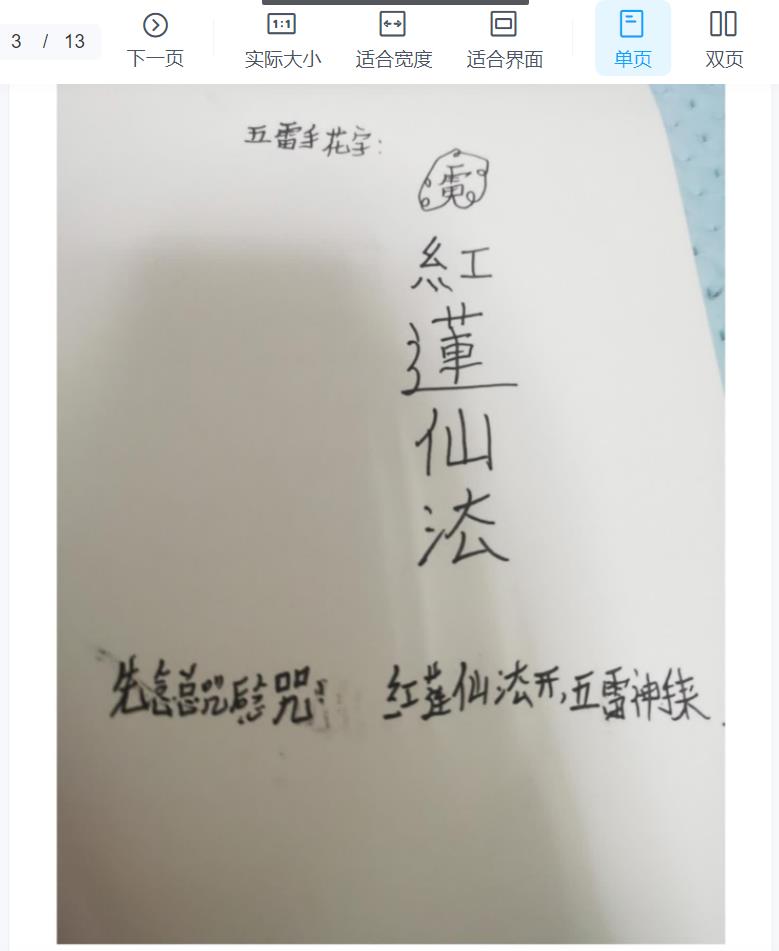 3 / 13
下一页
实际大小
适合宽度
适合界面
单页
双页
五雷手花字:
紅
蓮
仙
法
先念总咒后念咒: 红莲仙法开,五雷神